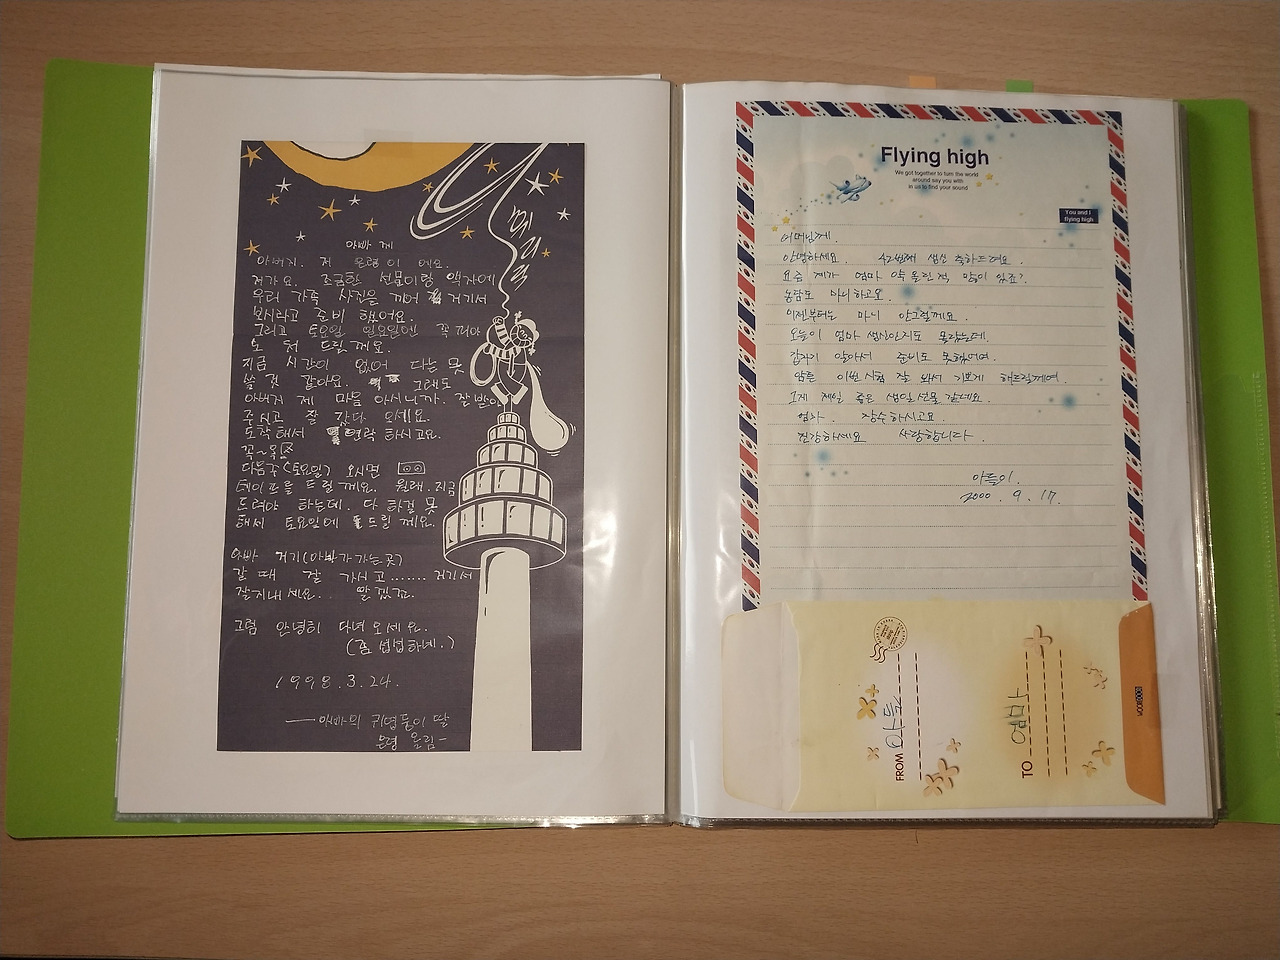 메리크
아빠 께
아버지. 저 은령이 에요.
저가요. 조금한 선물이랑 액자에
우리 가족 사진을 끼어 거기서
보시라고 준비 했어요.
그리고 토요일 일요일엔 꼭 피아
노 쳐 드릴께요.
지금 시간이 없어 다는 못
쓸 것 같아요. 그래도
아버지 제 마음 아시니까. 잘 받아
주시고 잘 갔다 오세요.
도착해서 연락 하시고요.
꼭~옥
다음주(토요일) 오시면
테이프를 드릴께요. 원래. 지금
드려야 하는데. 다 하질 못
해서 토요일에 드릴께요.
아빠 거기(아빠가 가는곳)
갈 때 잘 가시고....... 거기서
잘지내세요. 알겠죠.
그럼 안녕히 다녀오세요.
(좀 섭섭하네.)
1998.3.24.
아빠의 귀염둥이 딸
은령 올림-
Flying high
We got together to turn the world
around say you with
in us to find your sound
You and I
flying high
어머님께.
안녕하세요. 42번째 생신 축하드려요.
요즘 제가 엄마 약 올린적 많이 있죠?
농담도 마니하고요.
이젠부터는 마니 안그럴께요.
오늘이 엄마 생신인지도 몰랐는데.
갑자기 알아서 준비도 못했어여.
암튼 이번 시험 잘 봐서 기쁘게 해드릴께여.
그게 제일 좋은 생일선물 같네요.
엄마. 장수하시고요
건강하세요 사랑합니다.
아들이.
2000. 9. 17.
FROM 아들
TO 엄마